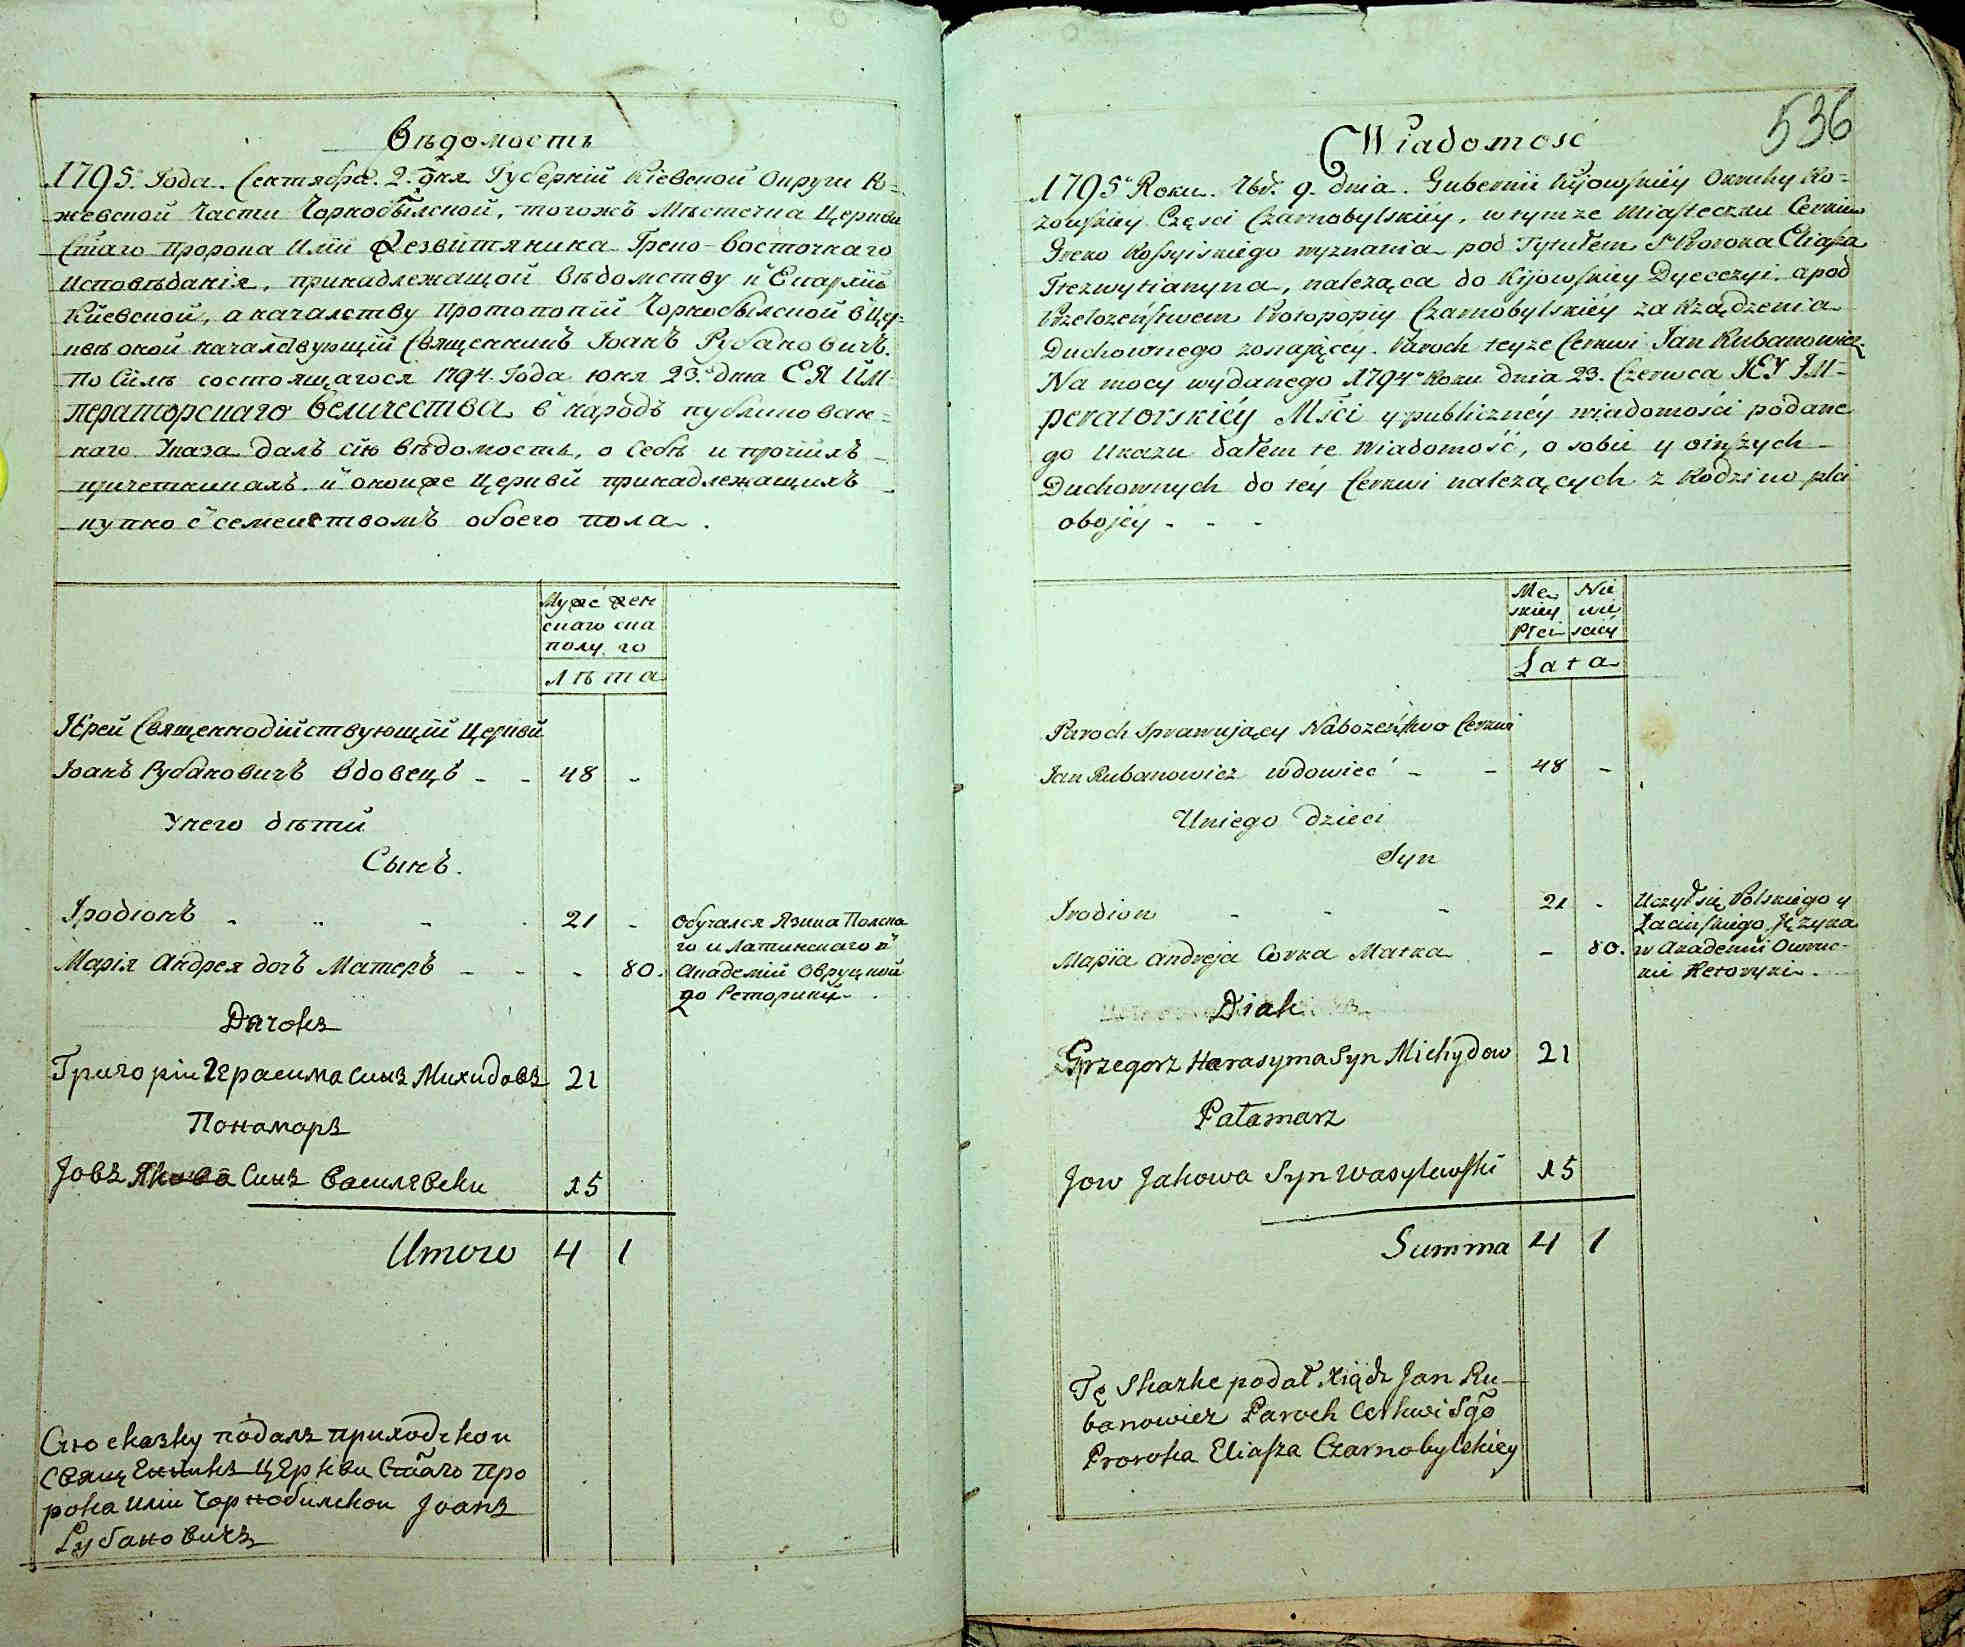 Вѣдомость
1795. Года. Сентября. 2. дня Губерніи Кіевской Округи Ко=
жевской Части Чорнобылской, тогожъ Мѣстечка Церкви
Стаго Пророка Иліи Фезвитянина Греко-Восточнаго
Исповѣданія, принадлежащой Вѣдомству и Епархіи
Кіевской, а началству Протопопіи Чорнобылской в Це-
началствующій Священникъ Іоанъ Рубановичъ.
По Силѣ состоящагося 1794. Года Юня 23. дня ЕЯ ИМ-
ператорскаго Величества в народъ публикован-
наго Указа далъ сію вѣдомость, о Себѣ и прочіихъ
причетникахъ и оной же Церкви принадлежащихъ
купно с семействомъ обоего пола.
Мужс Жен
скаго ска
полу. го
Лѣта
Іерей Священнодійствующій Церкви
Іоанъ Рубановичъ Вдовецъ - - 48 -
Унего дѣти
Сынъ.
Іродіонъ - - - 21 - Обучался Языка Полска
го и Латинскаго в
Марія Андрея дочъ Матеръ - - - 80. Академіи Овруцкой
до Реторики.
Дячокъ
Григоріи Герасима Синъ Михидовъ 21
Пономаръ
Іовъ Якова Синъ Василевски 15
Итого 4 1
Сію сказку подалъ приходскои
Священикъ Церкви Стаго Про
рока Иліи Чорнобилскои Іоанъ
Рубановичъ
536
Wiadomosć
1795o Roku. 7br. 9. dnia. Gubernii Kijowskiey Okruhy Ko=
zowskiey Częsci Czarnobylskiey, w tymze Miasteczku Cerkiew
Greko Rossyiskiego wyznania pod Tytułem S. Proroka Eliasza
Tezwytianyna, naleząca do Kijowskiey Dyecezyi, apod
Przełozeństwem Protopopiy Czarnobylskiey za Rządzenia
Duchownego zostającey. Paroch teyze Cerkwi Jan Rubanowicz.
Na mocy wydanego 1794o Roku dnia 23. Czerwca JEY IM-
peratorskiey Mści y publiczney wiadomości podane
go Ukazu dałem te Wiadomość, o sobie y ojnszych
Duchownych do tey Cerkwi nalezących z Rodzino płci
obojey - - -
Me- Nie
skiey wie
Płci sciey
Lata
Paroch Sprawujący Nabozeństwo Cerkwi
Jan Rubanowicz wdowiec - - 48 -
Uniego dzieci
Syn
Irodion - - - 21 - Uczył się Polskiego y
Łacińskiego Języka
Mapia Andreja Corka Matka - 80. w Akademii Owruc-
kie Retoryki.
Diak
Grzegorz Harasyma Syn Michydow 21
Pałamarz
Jow Jakowa Syn Wasylewski 15
Summa 4 1
Tę Skazke podał Xiądz Jan Ru-
banowicz Paroch Cerkwi Sgo
Proroka Eliasza Czarnobylskiey